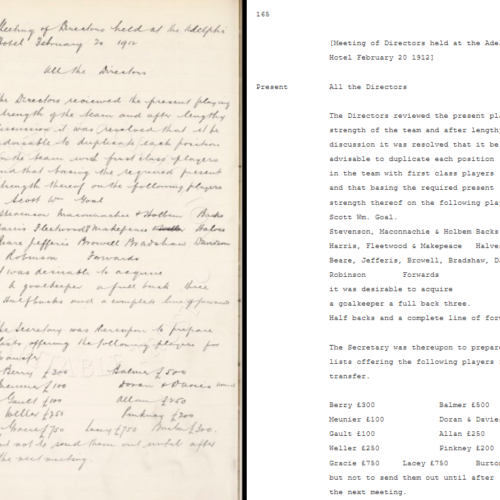 Meeting of Directors held at the Adelphi
Hotel February 20 1912
All the Directors
The Directors reviewed the present playing
strength of the team and after lengthy
discussion it was resolved that it be
advisable to duplicate each position
in the team with first class players
and that basing the required present
strength thereof on the following players
Scott Wm Goal
Stevenson Maconnachie & Holbem Backs
Harris Fleetwood & Makepeace Halves
Beare Jefferis Browell Bradshaw Davidson
Robinson Forwards
it was desirable to acquire
a goalkeeper a full back three
Half backs and a complete line of forwards
The Secretary was thereupon to prepare
lists offering the following players for
transfer
Berry £300 Balmer £500
Meunier £100 Doran & Davies
Gault £100 Allan £250
Weller £250 Pinkney £200
Gracie £750 Lacey £750 Burton £300.
but not to send them out until after
the next meeting.
165
[Meeting of Directors held at the Ade
Hotel February 20 1912]
Present All the Directors
The Directors reviewed the present pla
strength of the team and after lengthy
discussion it was resolved that it be
advisable to duplicate each position
in the team with first class players
and that basing the required present
strength thereof on the following play
Scott Wm. Goal.
Stevenson, Maconnachie & Holbem Backs
Harris, Fleetwood & Makepeace Halve
Beare, Jefferis, Browell, Bradshaw, Da
Robinson Forwards
it was desirable to acquire
a goalkeeper a full back three.
Half backs and a complete line of forw
The Secretary was thereupon to prepare
lists offering the following players f
transfer.
Berry £300 Balmer £500
Meunier £100 Doran & Davie
Gault £100 Allan £250
Weller £250 Pinkney £200
Gracie £750 Lacey £750 Burto
but not to send them out until after
the next meeting.